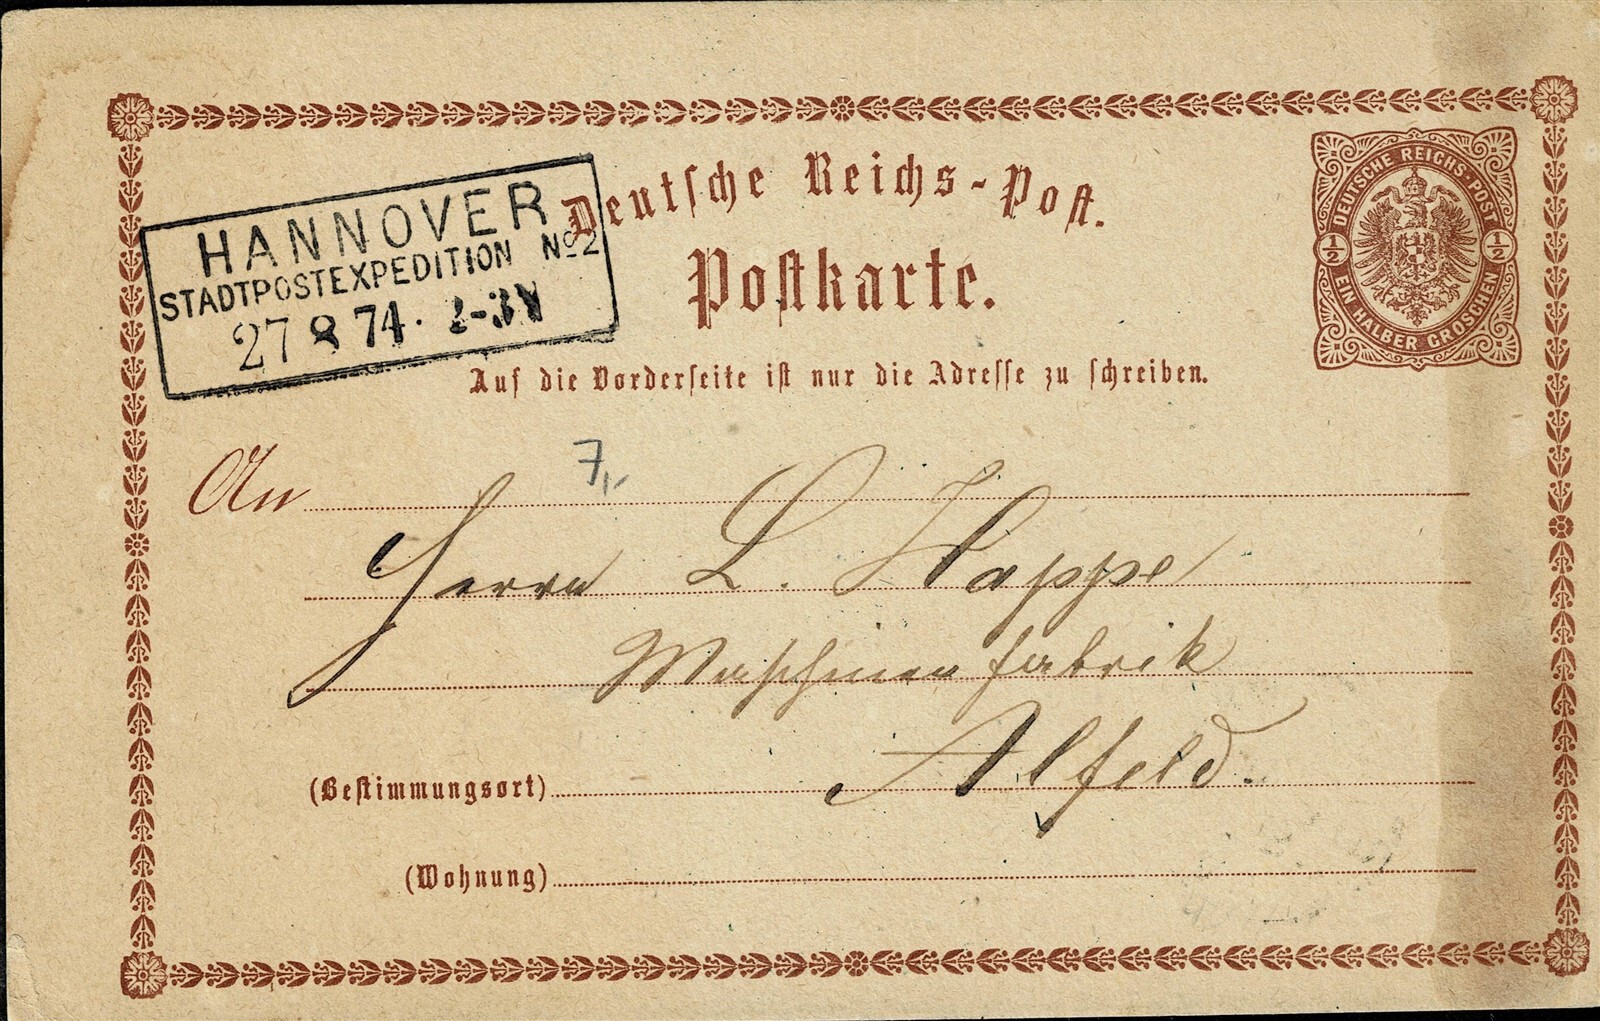 HANNOVER
STADTPOSTEXPEDITION No 2
27 8 74. 2-3N
Deutsche Reichs-Post.
Postkarte.
DEUTSCHE REICHS-POST
1/2 1/2
EIN HALBER GROSCHEN
Auf die Vorderseite ist nur die Adresse zu schreiben.
7,-
An
Herrn L. Happe
Maschinenfabrik
Alfeld.
(Bestimmungsort)
(Wohnung)